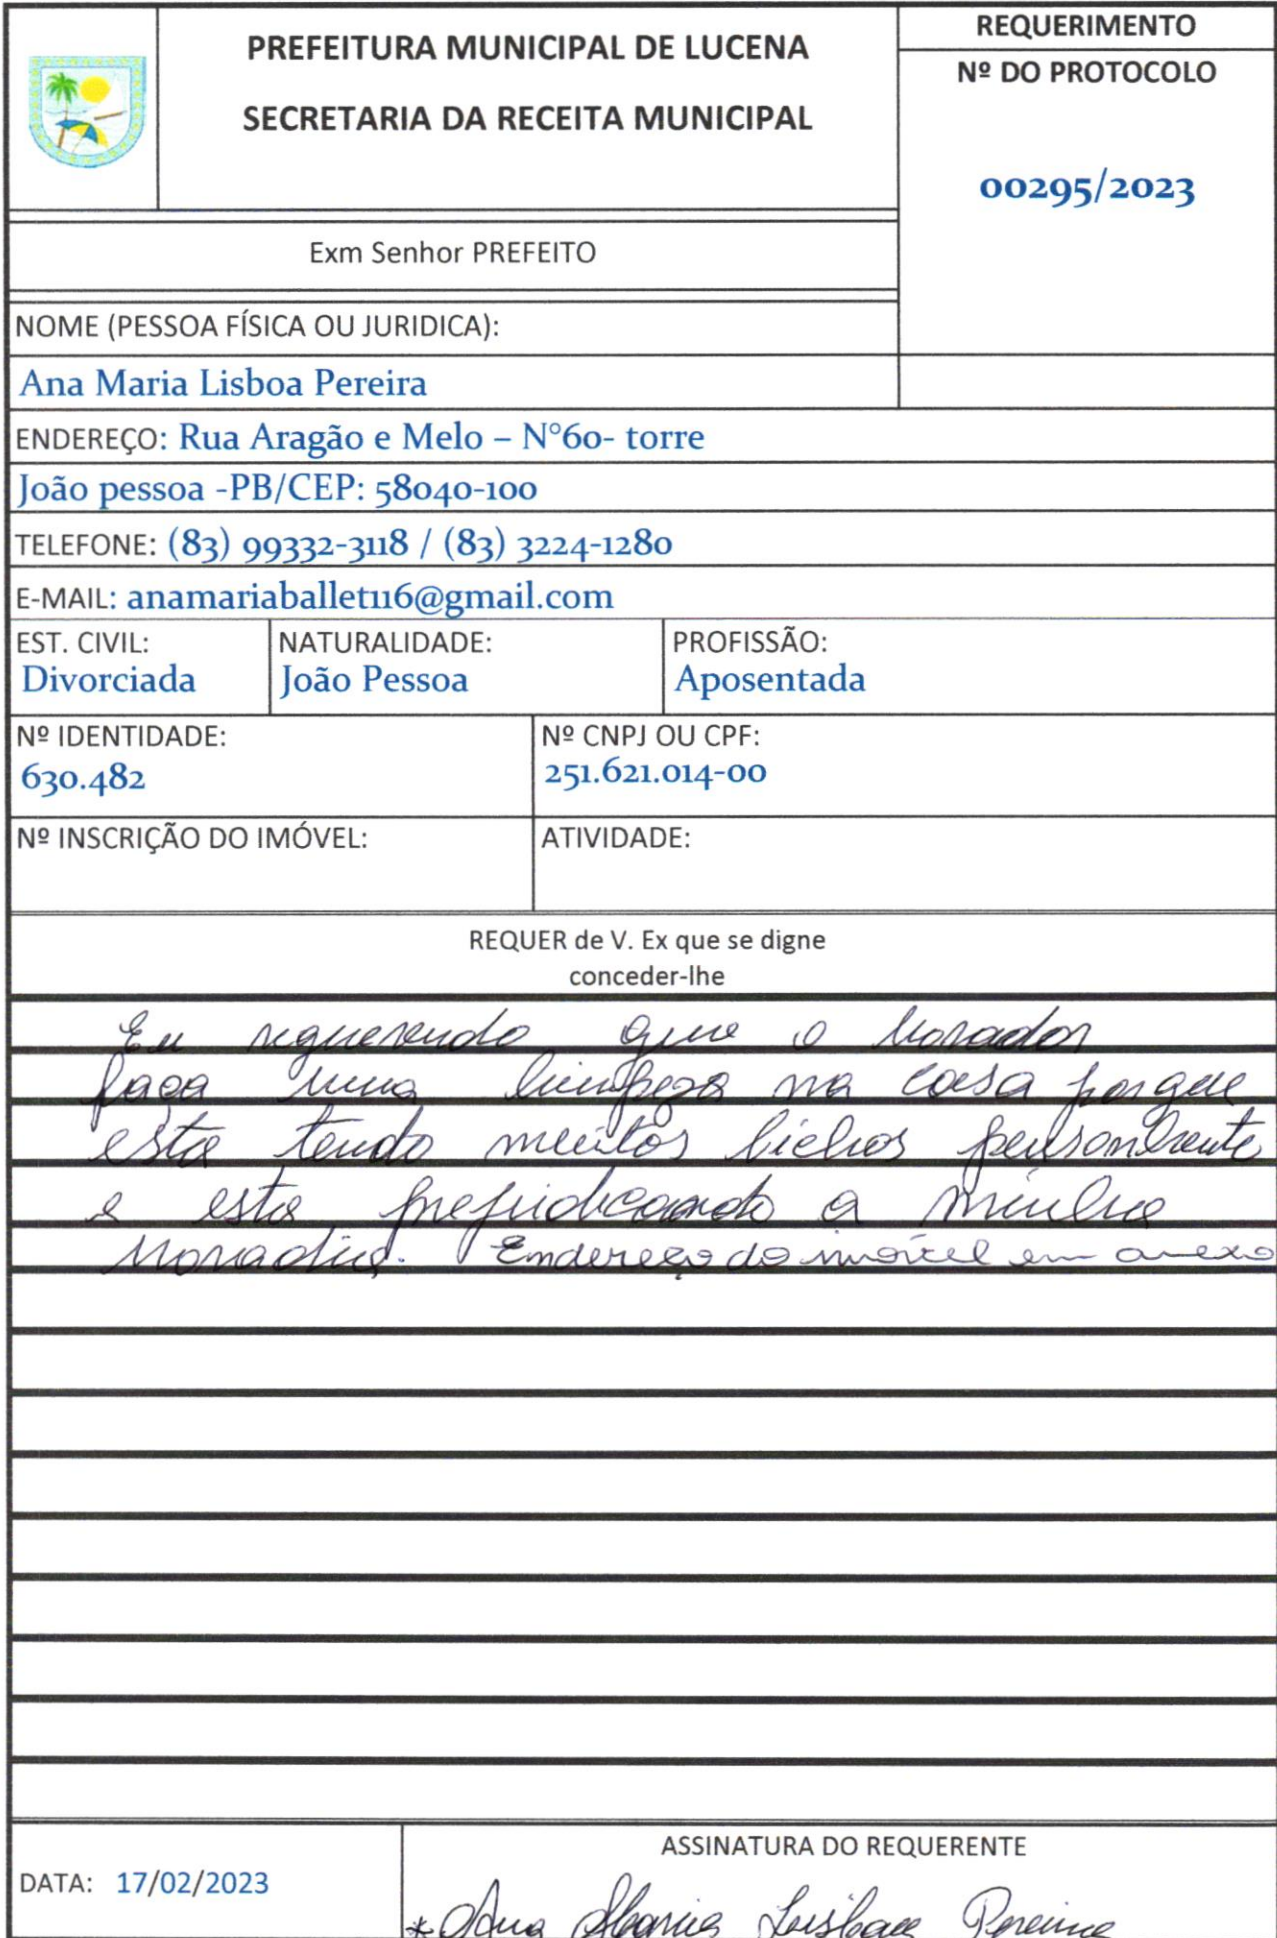 PREFEITURA MUNICIPAL DE LUCENA
SECRETARIA DA RECEITA MUNICIPAL
REQUERIMENTO
Nº DO PROTOCOLO
00295/2023
Exm Senhor PREFEITO
NOME (PESSOA FÍSICA OU JURIDICA):
Ana Maria Lisboa Pereira
ENDEREÇO: Rua Aragão e Melo – N°60- torre
João pessoa -PB/CEP: 58040-100
TELEFONE: (83) 99332-3118 / (83) 3224-1280
E-MAIL: anamariaballet116@gmail.com
EST. CIVIL:
Divorciada
NATURALIDADE:
João Pessoa
PROFISSÃO:
Aposentada
Nº IDENTIDADE:
630.482
Nº CNPJ OU CPF:
251.621.014-00
Nº INSCRIÇÃO DO IMÓVEL:
ATIVIDADE:
REQUER de V. Ex que se digne
conceder-lhe
Eu requerendo que o Morador
faça uma limpeza na casa porque
esta tendo muitos bichos
e esta prejudicando a minha
Moradia. Endereço do imóvel em anexo
DATA: 17/02/2023
ASSINATURA DO REQUERENTE
* Ana Maria Lisboa Pereira